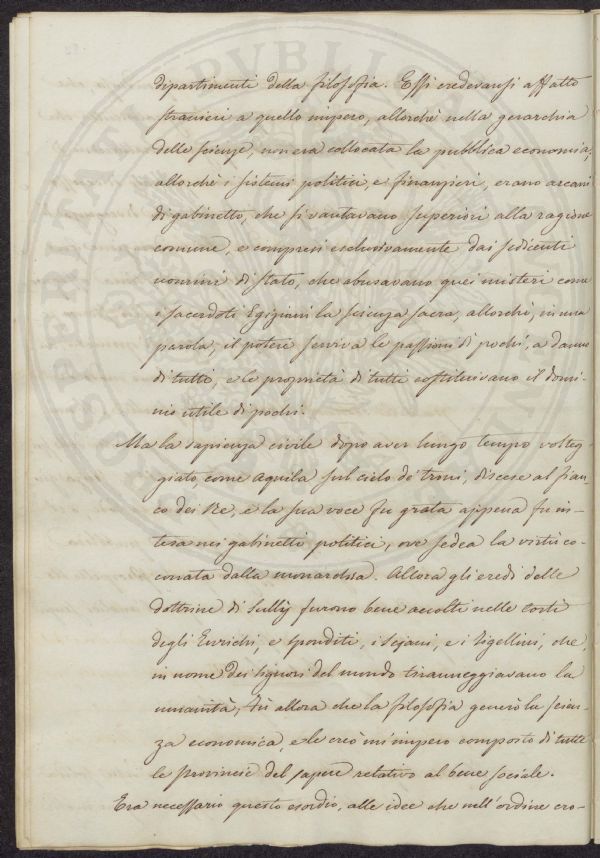 dipartimenti della filosofia. Essi credevansi affatto
stranieri a quello impero, allorchè nella gerarchia
delle scienze, non era collocata la pubblica economia,
allorchè i sistemi politici, e finanzieri, erano arcani
di gabinetto, che si vantavano superiori alla ragione
comune, e compresi esclusivamente dai sedicenti
uomini di stato, che abusavano quei misteri come
i sacerdoti Egiziani la scienza sacra, allorchè, in una
parola, il potere serviva le passioni di pochi, a danno
di tutti, e le proprietà di tutti costituivano il domi-
nio utile di pochi.
Ma la sapienza civile dopo aver lungo tempo volteg-
giato, come aquila sul cielo de' troni, discese al fian-
co dei Re, e la sua voce fu grata appena fu in-
tesa nei gabinetti politici, ove sedea la virtù co-
ronata dalla monarchia. Allora gli eredi delle
dottrine di Sully furono bene accolti nelle corti
degli Enrichi, e sponditi, i Sejani, e i Tigellini, che,
in nome dei signori del mondo tiranneggiavano la
umanità, Fu allora che la filosofia generò la scien-
za economica, e le creò un impero composto di tutte
le provincie del sapere relativo al bene sociale.
Era necessario questo esordio, alle idee che nell'ordine cro-